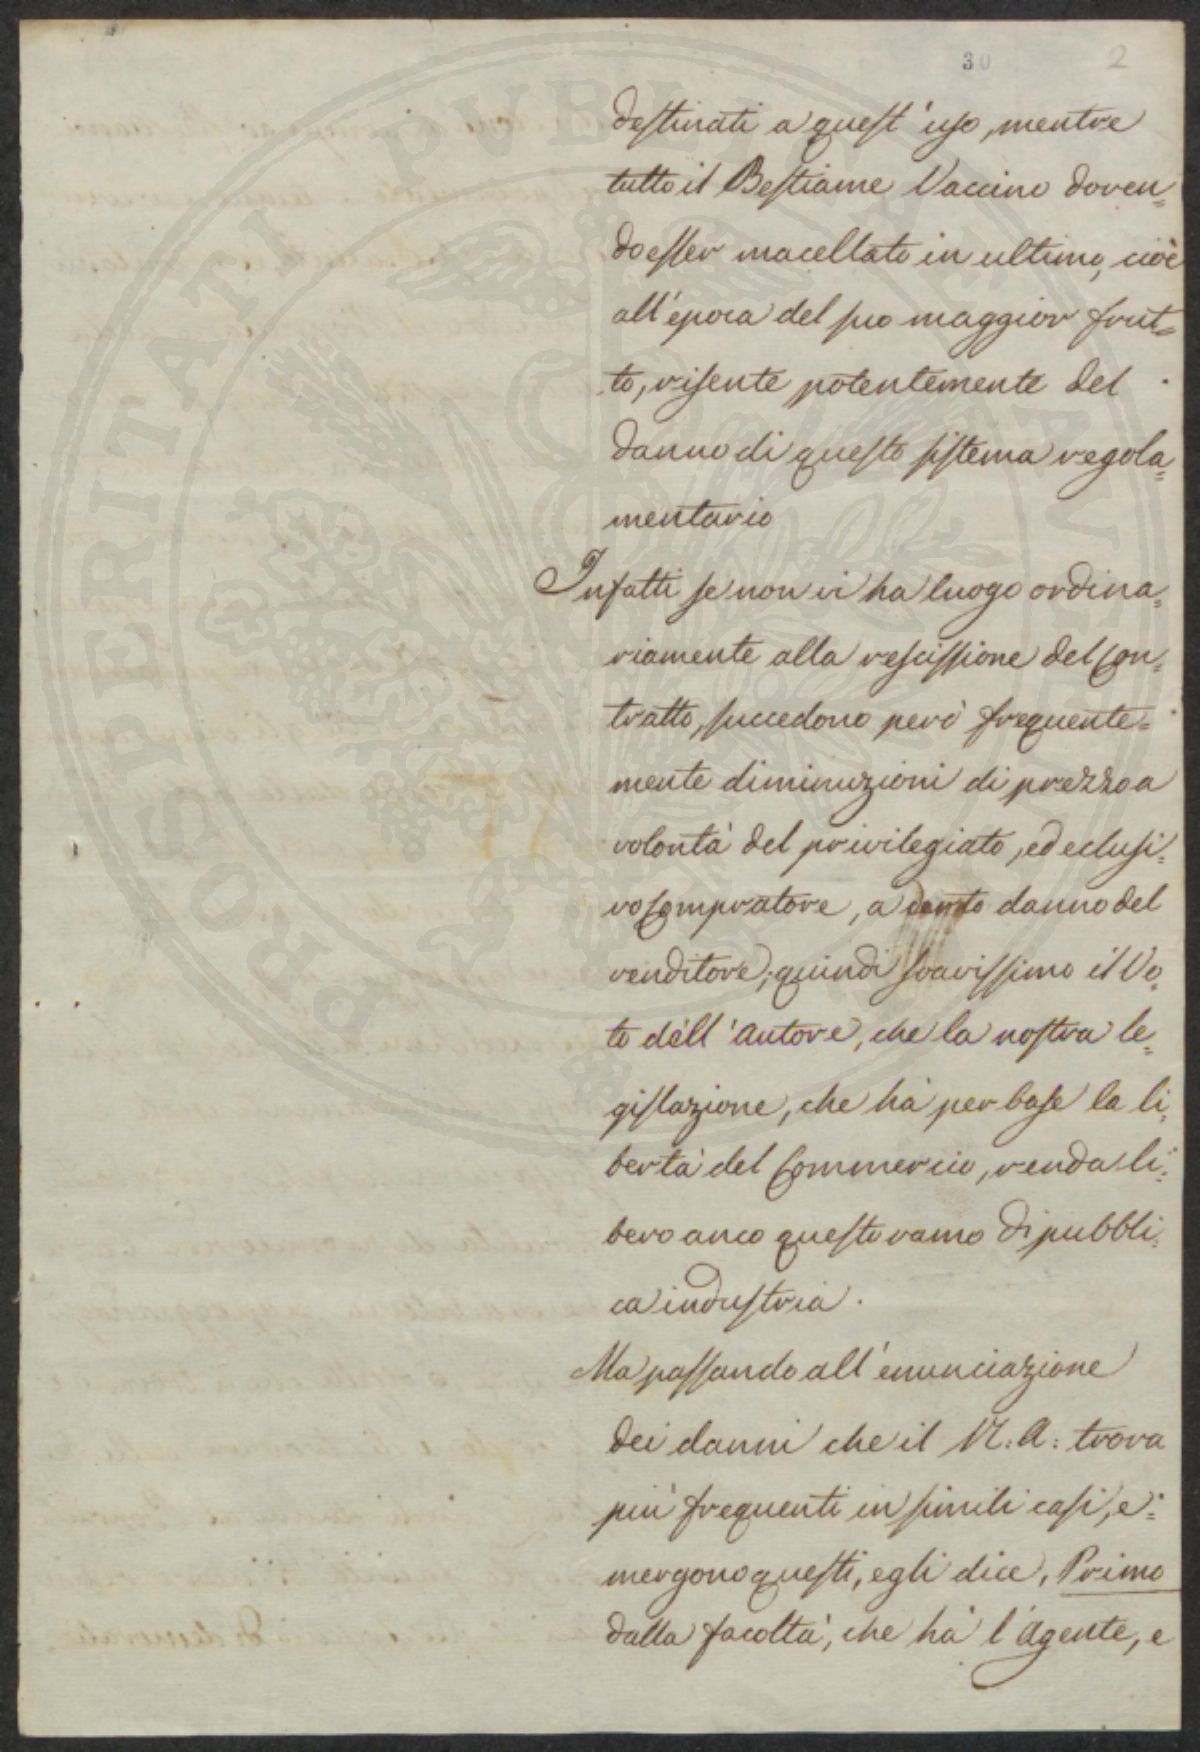 30 2
destinati a quest'uso, mentre
tutto il Bestiame Vaccino doven=
do esser macellato in ultimo, cioè
all'epoca del suo maggior frut=
to, risente potentemente del
danno di questo sistema regola=
mentario
Infatti se non vi ha luogo ordina=
riamente alla rescissione del Con=
tratto, succedono però frequente=
mente diminuzioni di prezzo a
volontà del privilegiato, ed eclusi=
vo Compratore, a danno del
venditore; quindi soavissimo il Vo=
to dell'autore, che la nostra le=
gislazione, che hà per base la li=
bertà del Commercio, renda li=
bero anco questo ramo di pubbli=
ca industria.
Ma passando all'enunciazione
dei danni che il N: A: trova
più frequenti in simili casi, e=
mergono questi, egli dice, Primo
dalla facoltà, che hà l'Agente, e
PROSPERITATI PVBLICAE AV